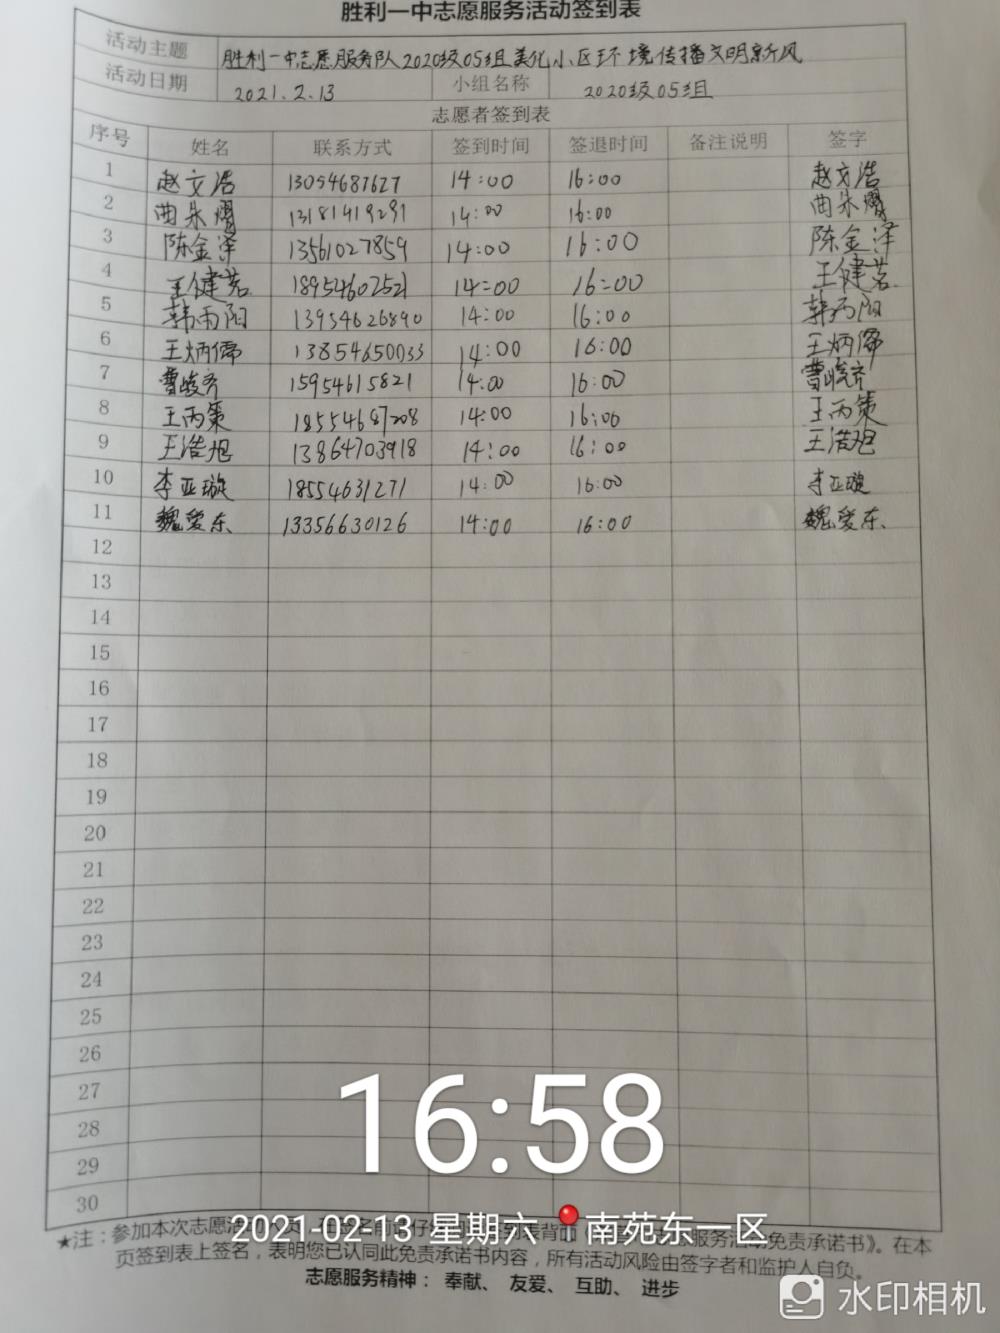 胜利一中志愿服务活动签到表
活动主题 胜利一中志愿服务队2020级05组美化小区环境传播文明新风
活动日期 2021.2.13 小组名称 2020级05组
志愿者签到表
序号 姓名 联系方式 签到时间 签退时间 备注说明 签字
1 赵文浩 13054687627 14:00 16:00 赵文浩
2 曲朱熠 13181419291 14:00 16:00 曲朱熠
3 陈金泽 13561027859 14:00 16:00 陈金泽
4 王健茗 18954607521 14:00 16:00 王健茗
5 韩雨阳 13954626890 14:00 16:00 韩雨阳
6 王炳儒 13854650033 14:00 16:00 王炳儒
7 曹峻齐 15954615821 14:00 16:00 曹峻齐
8 王丙策 18554687208 14:00 16:00 王丙策
9 王浩旭 13864703918 14:00 16:00 王浩旭
10 李亚璇 18554631271 14:00 16:00 李亚璇
11 魏爱东 13356630126 14:00 16:00 魏爱东
12
13
14
15
16
17
18
19
20
21
22
23
24
25
26
27
28
29
30
16:58
2021-02-13 星期六 南苑东一区
★注：参加本次志愿活 表背面 服务活动免责承诺书》。在本
页签到表上签名，表明您已认同此免责承诺书内容，所有活动风险由签字者和监护人自负。
志愿服务精神：奉献、友爱、互助、进步
水印相机